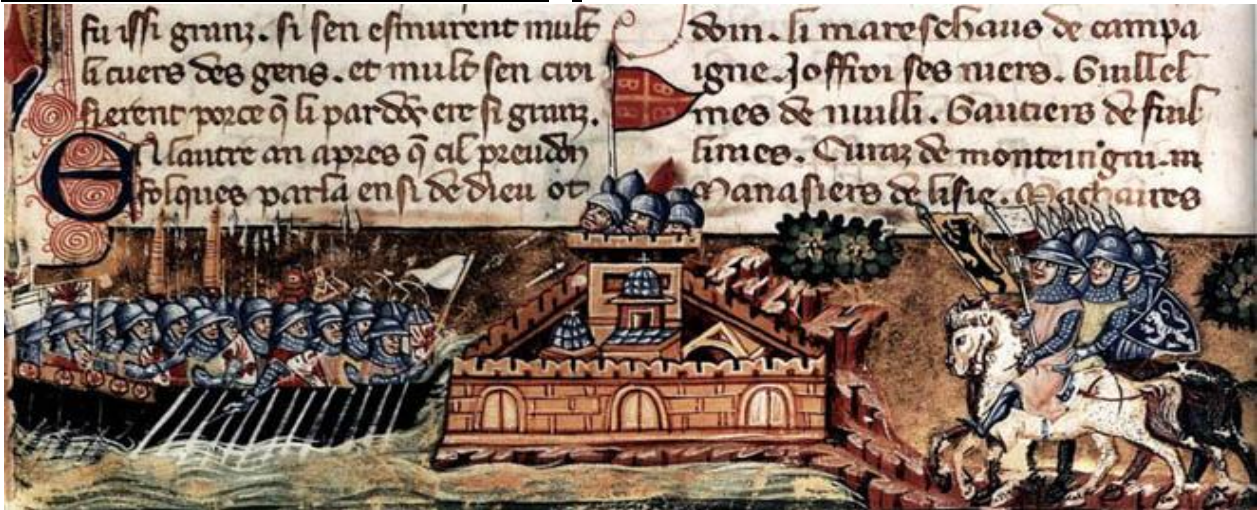 fu issi granz. si sen esmurent mult
li cuers des gens. et mult sen croi
sierent porce q̃ li pardõs ert si granz.
En lautre an apres q̃ cil preudõ
folques parla ensi de dieu ot
doin. li mareschaus de campa
igne. Joffroi ses niers. Guillel
mes de nuilli. Gautiers de fuil
limes. Curaz de monteingni. m
Manasiers de lisle. Machaires